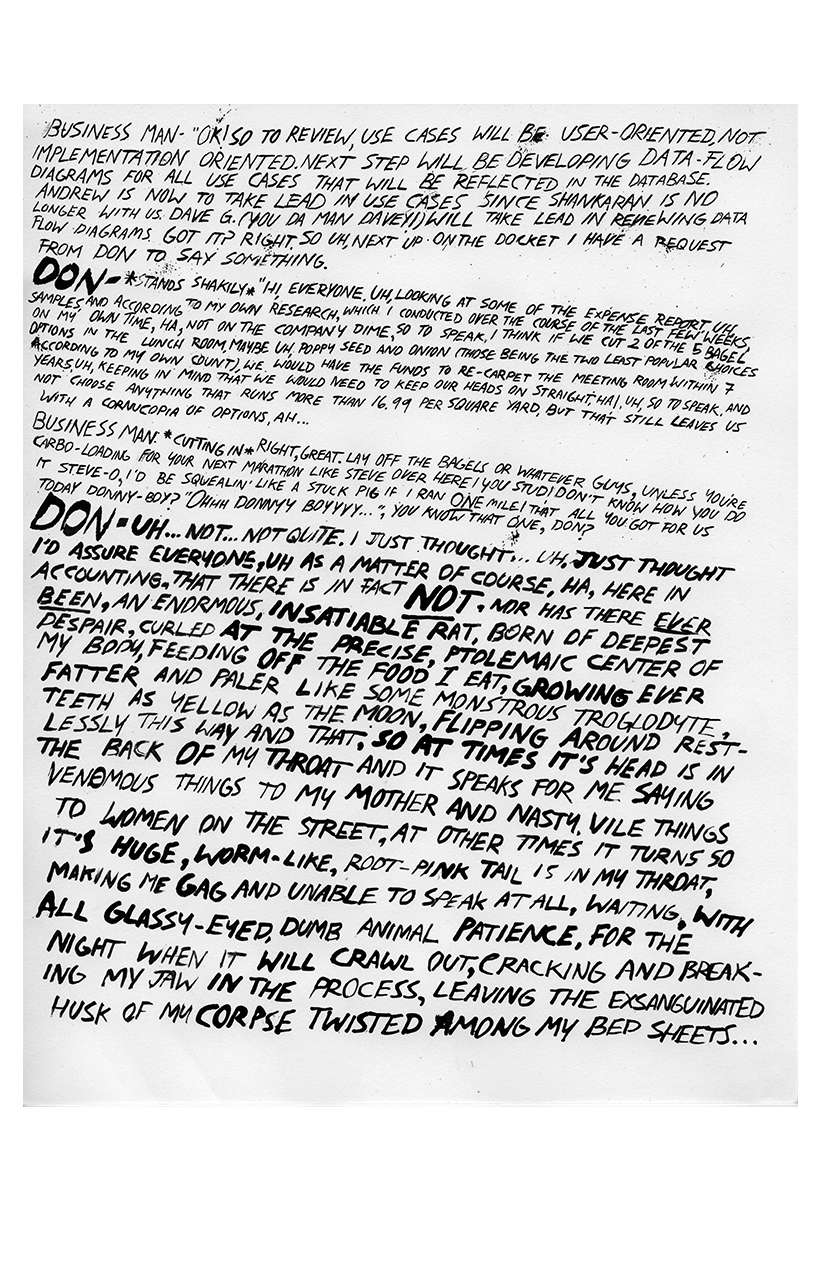 BUSINESS MAN- "OK! SO TO REVIEW, USE CASES WILL BE USER-ORIENTED, NOT
IMPLEMENTATION ORIENTED. NEXT STEP WILL BE DEVELOPING DATA-FLOW
DIAGRAMS FOR ALL USE CASES THAT WILL BE REFLECTED IN THE DATABASE.
ANDREW IS NOW TO TAKE LEAD IN USE CASES SINCE SHANKARAN IS NO
LONGER WITH US. DAVE G. (YOU DA MAN DAVEY!) WILL TAKE LEAD IN REVIEWING DATA
FLOW DIAGRAMS. GOT IT? RIGHT. SO UH, NEXT UP ON THE DOCKET I HAVE A REQUEST
FROM DON TO SAY SOMETHING.
DON- *STANDS SHAKILY* "HI, EVERYONE. UH, LOOKING AT SOME OF THE EXPENSE REPORT, UH
SAMPLES, AND ACCORDING TO MY OWN RESEARCH, WHICH I CONDUCTED OVER THE COURSE OF THE LAST FEW WEEKS,
ON MY OWN TIME, HA, NOT ON THE COMPANY DIME, SO TO SPEAK, I THINK IF WE CUT 2 OF THE 5 BAGEL
OPTIONS IN THE LUNCH ROOM, MAYBE UH, POPPY SEED AND ONION (THOSE BEING THE TWO LEAST POPULAR CHOICES
ACCORDING TO MY OWN COUNT), WE WOULD HAVE THE FUNDS TO RE-CARPET THE MEETING ROOM WITHIN 7
YEARS, UH, KEEPING IN MIND THAT WE WOULD NEED TO KEEP OUR HEADS ON STRAIGHT, HA!, UH, SO TO SPEAK, AND
NOT CHOOSE ANYTHING THAT RUNS MORE THAN 16.99 PER SQUARE YARD, BUT THAT STILL LEAVES US
WITH A CORNUCOPIA OF OPTIONS, AH...
BUSINESS MAN- *CUTTING IN* RIGHT, GREAT. LAY OFF THE BAGELS OR WHATEVER GUYS, UNLESS YOU'RE
CARBO-LOADING FOR YOUR NEXT MARATHON LIKE STEVE OVER HERE! YOU STUD! DON'T KNOW HOW YOU DO
IT STEVE-O, I'D BE SQUEALIN' LIKE A STUCK PIG IF I RAN ONE MILE! THAT ALL YOU GOT FOR US
TODAY DONNY-BOY? "OHHH DONNYY BOYYYY...", YOU KNOW THAT ONE, DON?
DON- UH... NOT... NOT QUITE. I JUST THOUGHT... UH, JUST THOUGHT
I'D ASSURE EVERYONE, UH AS A MATTER OF COURSE, HA, HERE IN
ACCOUNTING, THAT THERE IS IN FACT NOT, NOR HAS THERE EVER
BEEN, AN ENORMOUS, INSATIABLE RAT, BORN OF DEEPEST
DESPAIR, CURLED AT THE PRECISE, PTOLEMAIC CENTER OF
MY BODY, FEEDING OFF THE FOOD I EAT, GROWING EVER
FATTER AND PALER LIKE SOME MONSTROUS TROGLODYTE,
TEETH AS YELLOW AS THE MOON, FLIPPING AROUND REST-
LESSLY THIS WAY AND THAT, SO AT TIMES IT'S HEAD IS IN
THE BACK OF MY THROAT AND IT SPEAKS FOR ME SAYING
VENOMOUS THINGS TO MY MOTHER AND NASTY, VILE THINGS
TO WOMEN ON THE STREET, AT OTHER TIMES IT TURNS SO
IT'S HUGE, WORM-LIKE, ROOT-PINK TAIL IS IN MY THROAT,
MAKING ME GAG AND UNABLE TO SPEAK AT ALL, WAITING, WITH
ALL GLASSY-EYED, DUMB ANIMAL PATIENCE, FOR THE
NIGHT WHEN IT WILL CRAWL OUT, CRACKING AND BREAK-
ING MY JAW IN THE PROCESS, LEAVING THE EXSANGUINATED
HUSK OF MY CORPSE TWISTED AMONG MY BED SHEETS...